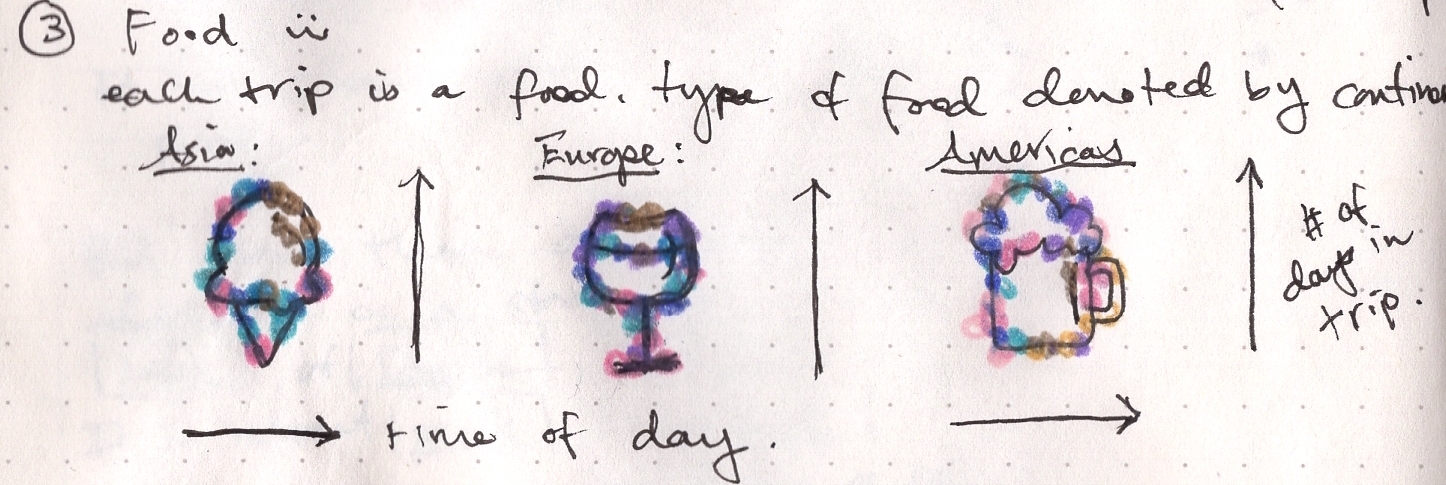 ③ Food ü
each trip is a food. type of food denoted by
Asia:
Europe:
Americas
# of
days in
trip.
time of day.